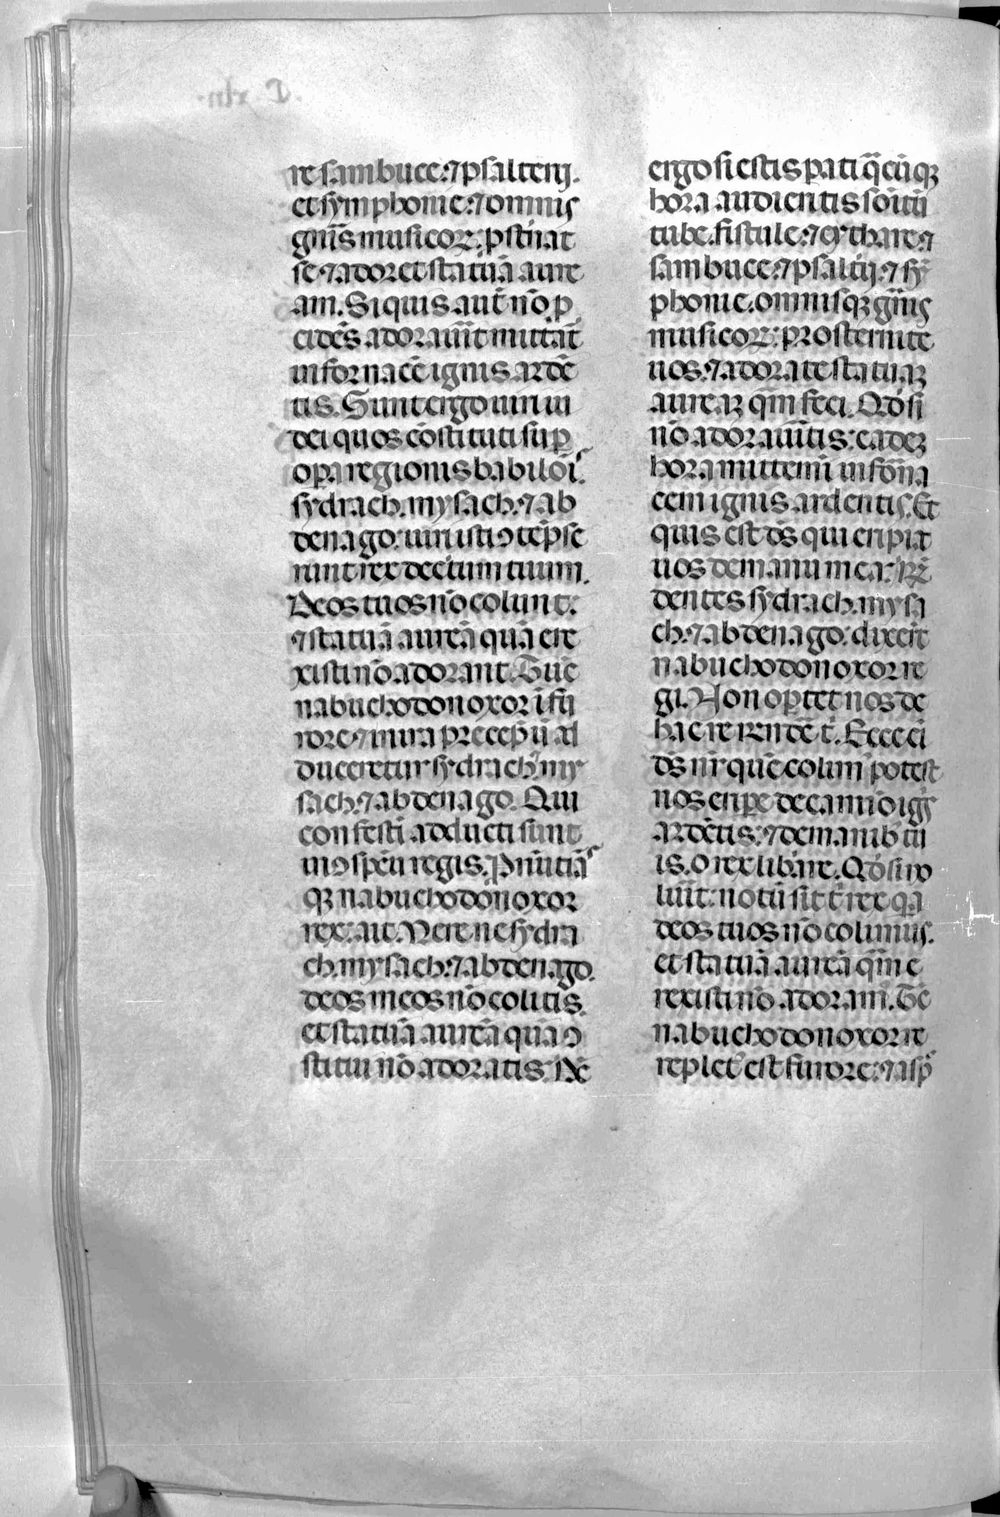 re sambuce: ⁊ psalterij.
et symphonie: ⁊ omnis
gnĩs musicoꝝ: ꝓstñat
se ⁊ adoret statuã aure
am. Si quis aut̃ nõ ꝓ
cidẽs adorauĩt mittat̃
in fornacẽ ignis ardẽ
tis. Sunt ergo uiri iu
dei quos cõstituti suꝑ
oꝑa regionis babilõis.
sydrach. mysach. ⁊ ab
denago. uiri isti ꝯtẽpse
runt rex decretum tuum.
Deos tuos nõ colunt:
⁊ statuã aureã quã ere
xisti nõ adorant. Tũc
nabuchodonoxor ĩ fu
rore ⁊ in ira precep̃ ut ad
duceretur sydrach. my
sach. ⁊ abdenago. Qui
confesti adducti sunt
in ꝯspcũ regis. Pnũtiãs
qꝫ nabuchodonoxor
rex. ait. Vere ne sydra
ch. mysach. ⁊ abdenago.
deos meos nõ colitis.
et statuã aureã quã ꝯ
stitui nõ adoratis. Nũc
ergo si estis pati q̃cũqꝫ
hora audieritis sõitũ
tube. fistule. ⁊ cythare. ⁊
sambuce. ⁊ psaltij. ⁊ sỹ
phonie. omnisqꝫ gñis
musicoꝝ: prosternite
uos. ⁊ adorate statuaꝫ
aureaꝫ q̃m feci. Qd̃ si
nõ adorauĩtis: eadeꝫ
hora mittemĩ in forna
cem ignis ardentis. Et
quis est dš qui eripiat
uos de manu mea: Rñ
dentes sydrach. mysa
ch. ⁊ abdenago: dixert̃
nabuchodonoxor re
gi. Non oꝑtet nos de
hac re rñdẽ t̃. Ecce ei
dš nr̃ quẽ colim̃ potest
nos eriꝑe de camĩo igĩs
ardẽtis. ⁊ de manib' tu
is. o rex libare. Qd̃ si no
luĩt: notũ sit t̃ rex q̃a
deos tuos nõ colimus.
et statuã aureã q̃m e
rexisti nõ adoram̃. Tũc
nabuchodonoxor re
replet' est furore: ⁊ asp̃